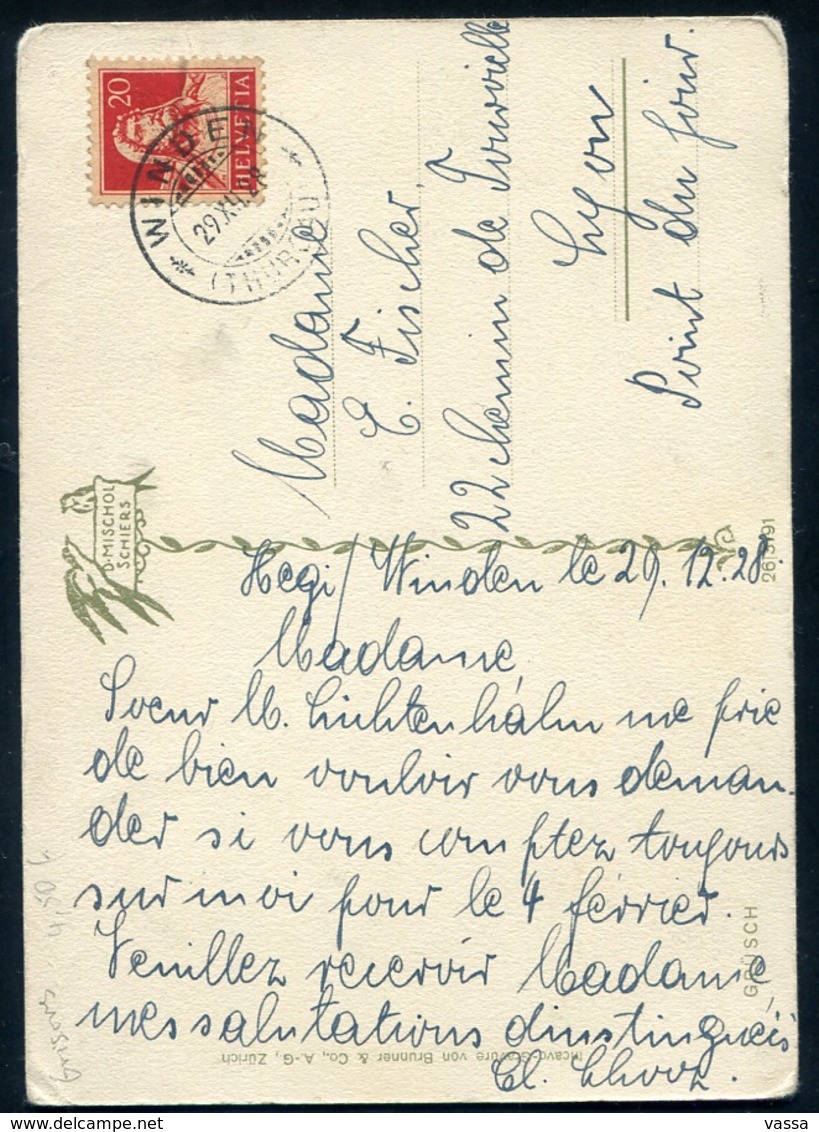 20
HELVETIA
WINDEN
29.XII.28
(THURGAU)
Madame
E. Fischer,
22 chemin de Fourvielle
Lyon
Point du Jour.
D. MISCHOL
SCHIERS
2615791
Hegi/Winden le 29.12.28.
Madame,
Soeur M. Lichtenhahn me prie
de bien vouloir vous deman-
der si vous comptez toujours
sur moi pour le 4 février.
Veuillez recevoir Madame,
mes salutations dinstinguées
GRÜSCH
Incavo-Gravure von Brunner & Co., A.-G., Zürich
Grisons
vassa